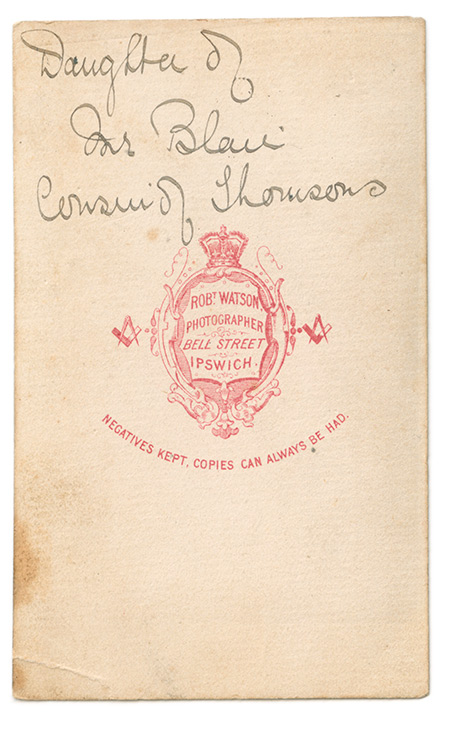 Daughter of
Mr Blair
Cousin of Thomsons
ROBT WATSON
PHOTOGRAPHER
BELL STREET
IPSWICH.
NEGATIVES KEPT, COPIES CAN ALWAYS BE HAD.